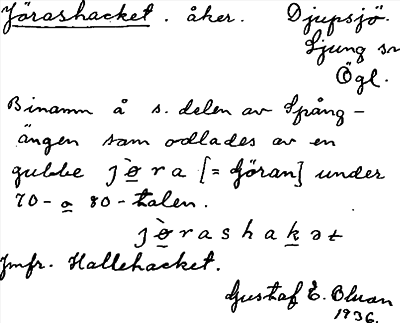 Jörashacket. åker. Djupsjö.
Ljung sn
Ögl.
Binamn å s. delen av Spång-
ängen som odlades av en
gubbe jɵ̀ra [= Göran] under
70- a 80-talen.
jɵ̀rashakət
Jmfr. Hallehacket.
Gustaf E. Olsson
1936.